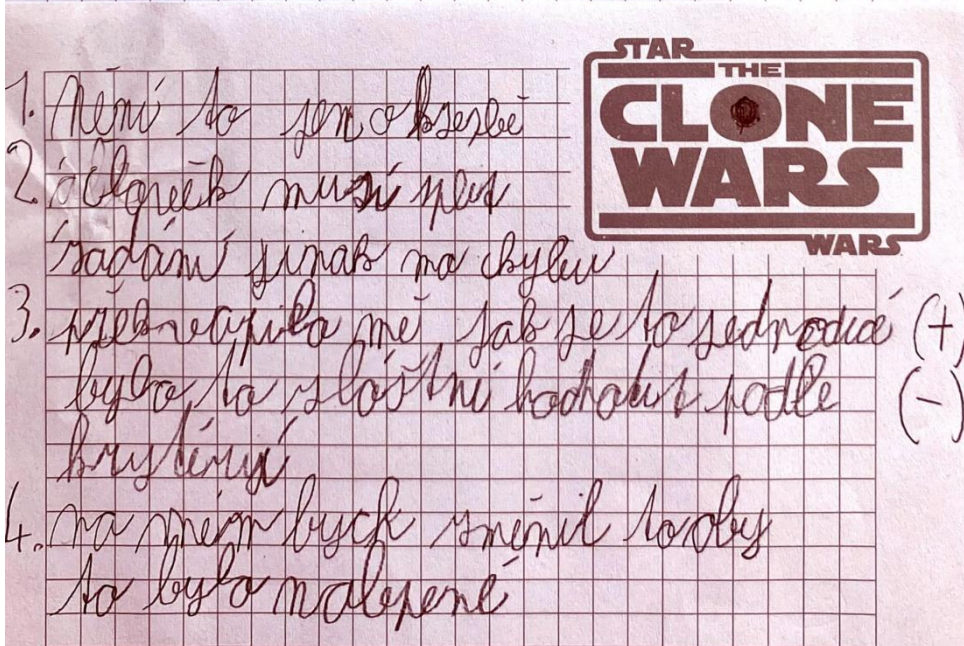 STAR
THE
CLONE
WARS
WARS
1. Není to jen o kreslě
2. i člověk musí
zadání jinak má chybu
3. překvapilo mě jak je to jednoducé (+)
bylo to zláštní hodnotit podle (-)
krytéryí
4. na mém bych změnil to aby
to bylo nalepené